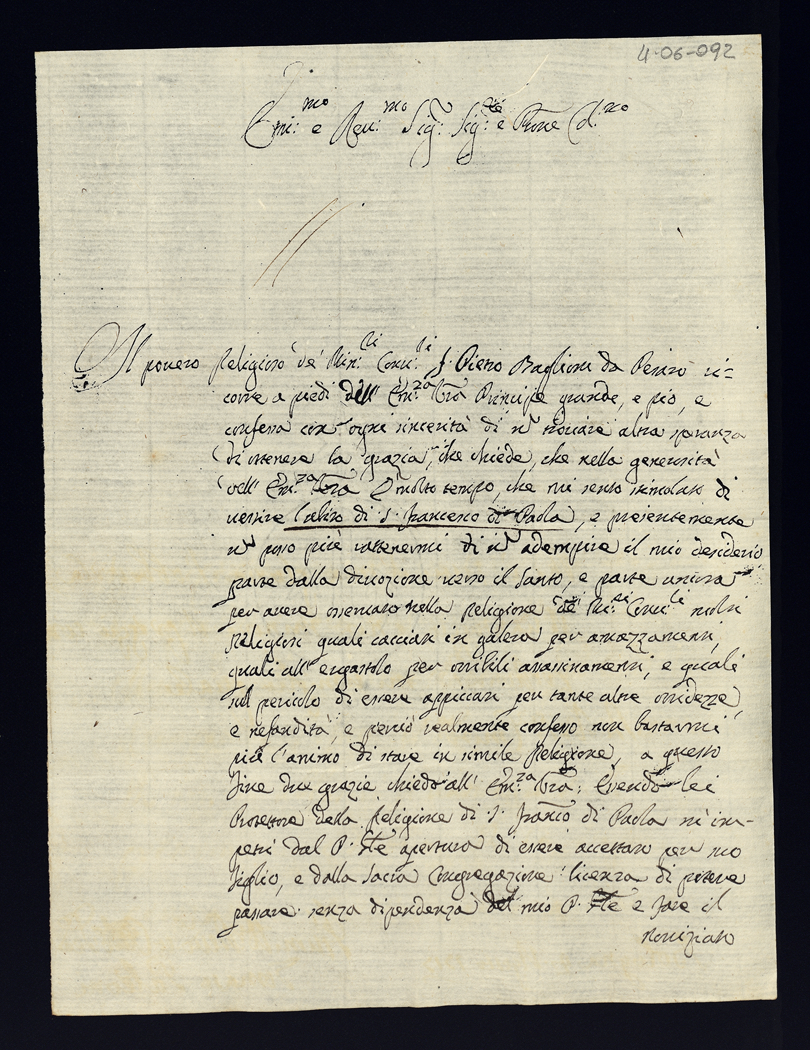 4-06-092
Emi:mo e Reu:mo Sig: Sig:re e Prone Col:mo
Il pouero Religioso de' Min:ri Conu:li f. Pietro Baglioni da Pesaro ri=
corre a piedi dell' Em:za Vra Principe grande, e pio, e
confessa con ogni sincerità di n trouare altra speranza
di ottenere la grazia, che chiede, che nella generosità
dell' Em:za Vra È molto tempo, che mi sento stimolato di
uestire l'abito di S. Francesco di Paola, e presentemente
n posso più trattenermi di n adempire il mio desiderio
parte dalla diuozione uerso il Santo, e parte ancora
per auere osseruato nella Religione de' Mi:ri Conu:li molti
Religiosi quali cacciati in galera per amazzamenti,
quali all' ergastolo per orribili assassinamenti, e quali
sul pericolo di essere appiccati per tante altre orridezze,
e nefandità, e perciò realmente confesso non bastarmi
più l'animo di stare in simile Religione, a questo
fine due grazie chiedo all' Em:za Vra: Essendo lei
Protettore della Religione di S. Franco di Paola m' im-
petri dal P. Gle apertura di essere accettato per suo
figlio, e dalla Sacra Congregazione licenza di potere
passare senza dipendenza del mio P. Gle e fare il
Nouiziato